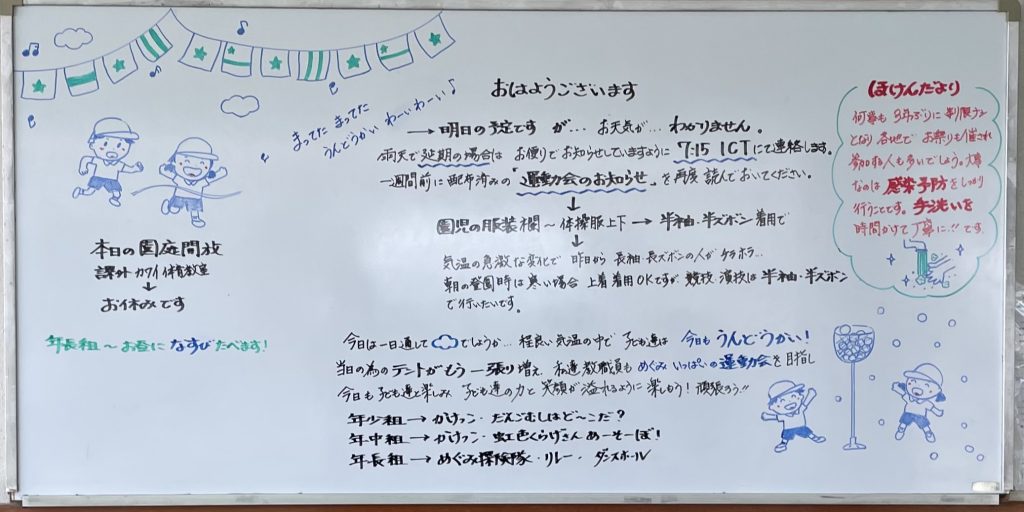 おはようございます
まってた まってた
うんどうかい わーいわーい♪
→ 明日の予定です が… お天気が… わかりません。
雨天で延期の場合は お便りでお知らせしていますように 7:15 ICTにて連絡します。
一週間前に配布済みの『運動会のお知らせ』を再度 読んでおいてください。
↓
園児の服装欄〜体操服上下 → 半袖・半ズボン着用で
↓
気温の急激な変化で 昨日から 長袖・長ズボンの人が チラホラ…
朝の登園時は寒い場合 上着着用OKですが 競技・演技は 半袖・半ズボン
で行いたいです。
本日の園庭開放
課外カワイ体育教室
↓
お休みです
年長組〜お昼に なすびたべます!
今日は一日通して でしょうか… 程良い気温の中で 子ども達は 今日も うんどうかい!
当日の為のテントがもう一張り増え 私達教職員も めぐみいっぱいの運動会を目指し
今日も子ども達と楽しみ 子ども達の力と笑顔が溢れるように 楽しもう! 頑張ろう!!
年少組→かけっこ・だんごむしはど〜こだ?
年中組→かけっこ・虹色くらげさん めーせーぼ!
年長組→めぐみ探険隊・リレー・ダンスホール
ほけんだより
何事も 3年ぶりに 制限なし
となり 各地で お祭りも催され
参加する人も多いでしょう。大事
なのは 感染予防をしっかり
行うことです。手洗いを
時間かけて丁寧に!!です